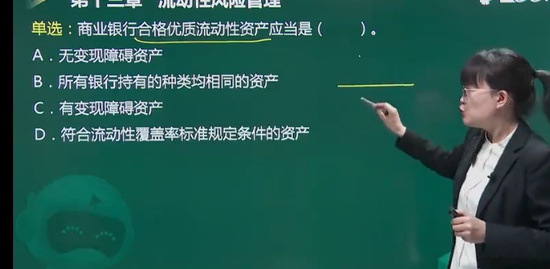 第十三章 流动性风险管理
单选：商业银行合格优质流动性资产应当是（ ）。
A．无变现障碍资产
B．所有银行持有的种类均相同的资产
C．有变现障碍资产
D．符合流动性覆盖率标准规定条件的资产